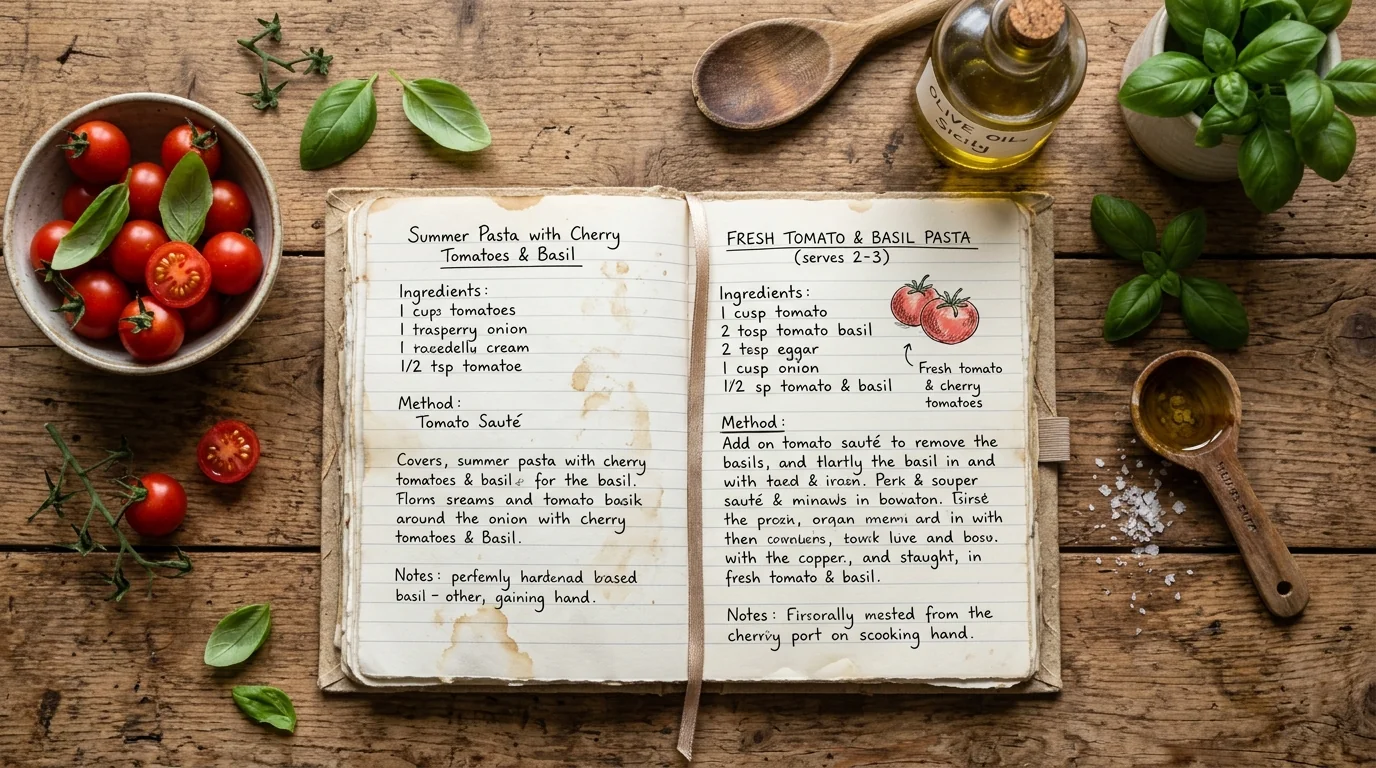 OLIVE OIL
Sicily
Summer Pasta with Cherry
Tomatoes & Basil
Ingredients:
1 cups tomatoes
1 trasperry onion
1 racedelly cream
1/2 tsp tomatoe
Method:
Tomato Sauté
Covers, summer pasta with cherry
tomatoes & basil & for the basil.
Florns sreams and tomato basik
around the onion with cherry
tomatoes & Basil.
Notes: perfemly hardenad based
basil - other, gaining hand.
FRESH TOMATO & BASIL PASTA
(serves 2-3)
Ingredients:
1 cusp tomato
2 tosp tomato basil
2 tesp eggar
1 cusp onion
1/2 sp tomato & basil
Fresh tomato
& cherry
tomatoes
Method:
Add on tomato sauté to remove the
basils, and tlartly the basil in and
with taed & irasn. Perk & souper
sauté & minaws in bowaton. Tsirse
the prozn, organ memi ard in with
then cownlens, towik live and bosu.
with the copper, and staught, in
fresh tomato & basil.
Notes: Firsorally mested from the
cherviy port on scooking hand.